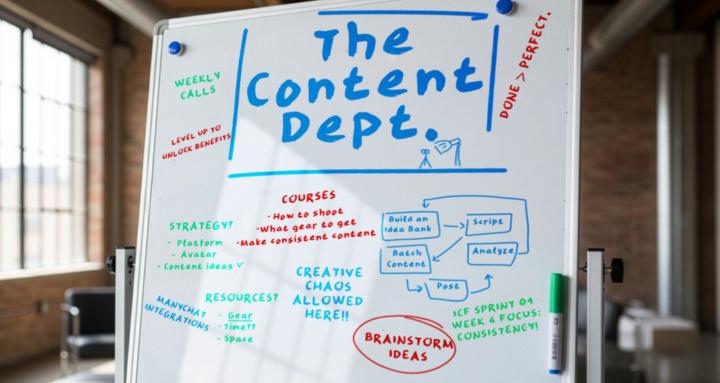 The
Content
Dept.
DONE > PERFECT.
WEEKLY
CALLS
LEVEL UP TO
UNLOCK BENEFITS
COURSES
- How to shoot
- What gear to get
- Make consistent content
STRATEGY?
- Platform
- Avatar
- Content ideas ✓
Build an
Idea Bank
Script
Batch
Content
Analyze
Post
CREATIVE
CHAOS
ALLOWED
HERE!!
MANYCHAT
INTEGRATIONS
RESOURCES?
- Gear
- Time??
- Space
BRAINSTORM
IDEAS
ICF SPRINT 01
WEEK 4 FOCUS:
CONSISTENCY!